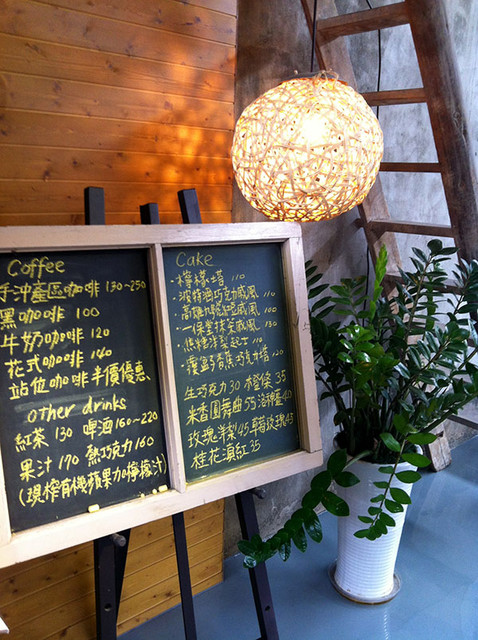 Coffee
手沖產區咖啡 130~250
黑咖啡 100
牛奶咖啡 120
花式咖啡 140
站位咖啡半價優惠
other drinks
紅茶 130 啤酒 160~220
果汁 170 熱巧克力 160
(現榨有機蘋果加檸檬汁)
Cake
·檸檬塔 110
·波特酒巧克力戚風 110
·高雄 戚風 100
·一保堂抹茶戚風 130
·焦糖洋梨起士 110
·蘭姆香蕉巧克力塔 120
生巧克力 30 橙條 35
米香圓舞曲 55 洛神蜜 40
玫瑰洋梨 45 玫瑰 45
桂花滇紅 35